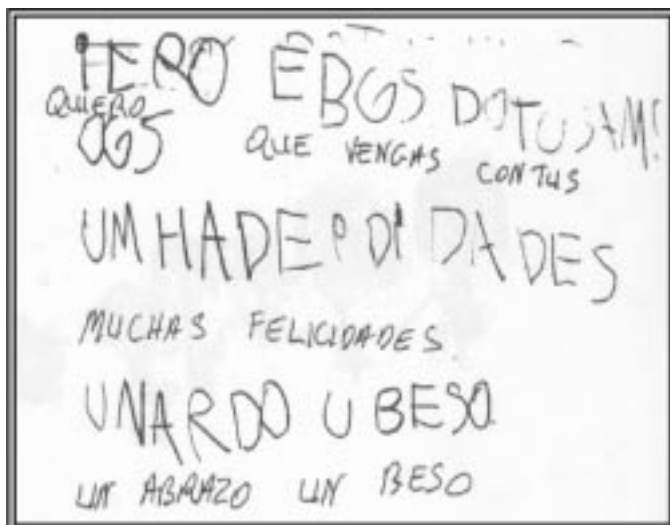 PERO EBGS DOTUSAM!
QUIERO QUE VENGAS CON TUS
OGS
UMHADEPDIDADES
MUCHAS FELICIDADES
UNARDO U BESO
UN ABRAZO UN BESO